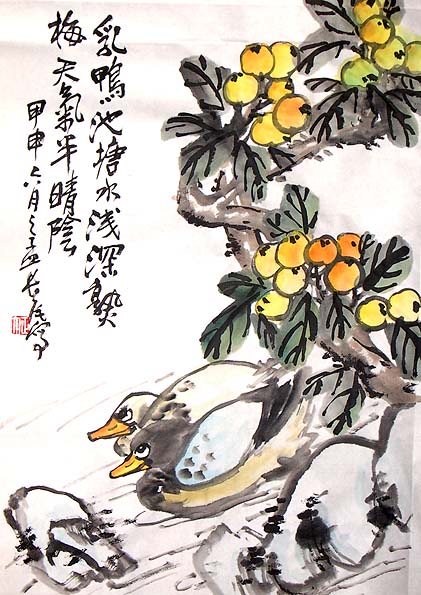 乳鴨池塘水浅深熟
梅天氣半晴陰
甲申六月之